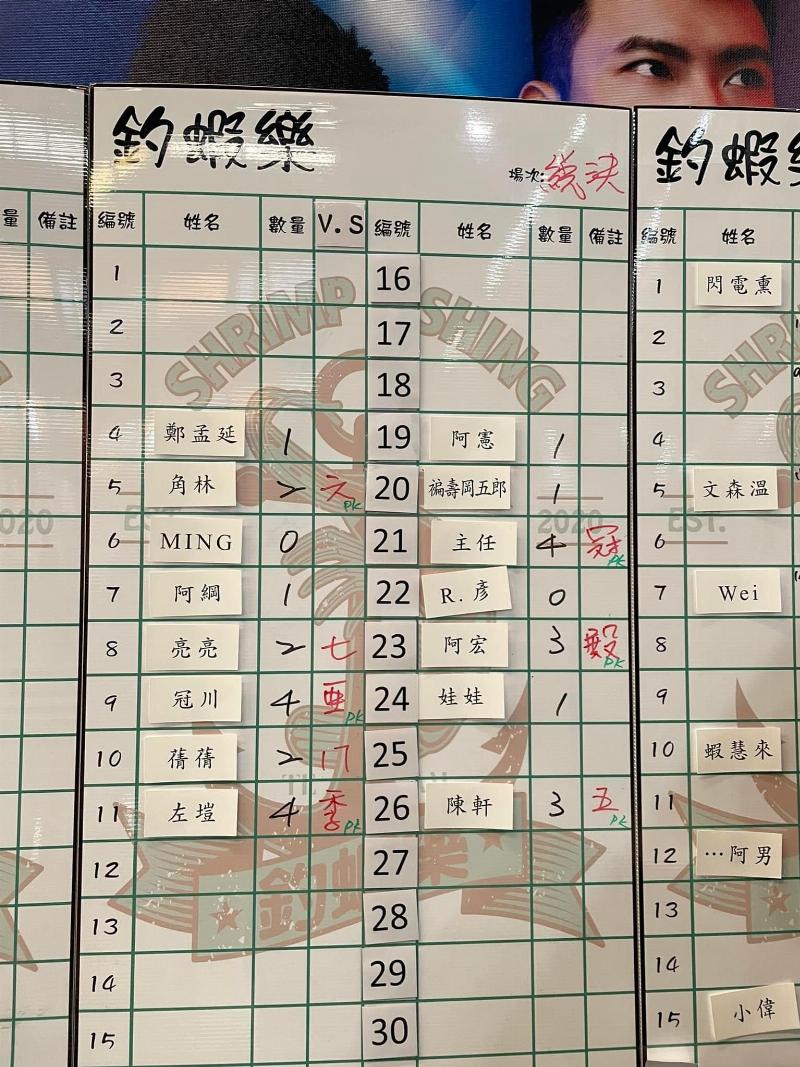 釣蝦樂
場次:總決
編號 姓名 數量 V.S 編號 姓名 數量 備註
1 16
2 17
3 18
4 鄭孟延 1 19 阿憲 1
5 角林 2 六PK 20 褔壽岡五郎 1
6 MING 0 21 主任 4 冠PK
7 阿綱 1 22 R.彥 0
8 亮亮 2 七 23 阿宏 3 殿PK
9 冠川 4 亞PK 24 娃娃 1
10 蒨蒨 2 八 25
11 左塏 4 季PK 26 陳軒 3 五PK
12 27
13 28
14 29
15 30
量 備註
2020
釣蝦
編號 姓名
1 閃電熏
2
3
4
5 文森溫
6
7 Wei
8
9
10 蝦慧來
11
12 …阿男
13
14
15 小偉
SHRIMP SHING
EST. 2020
釣蝦樂
SHR
EST.